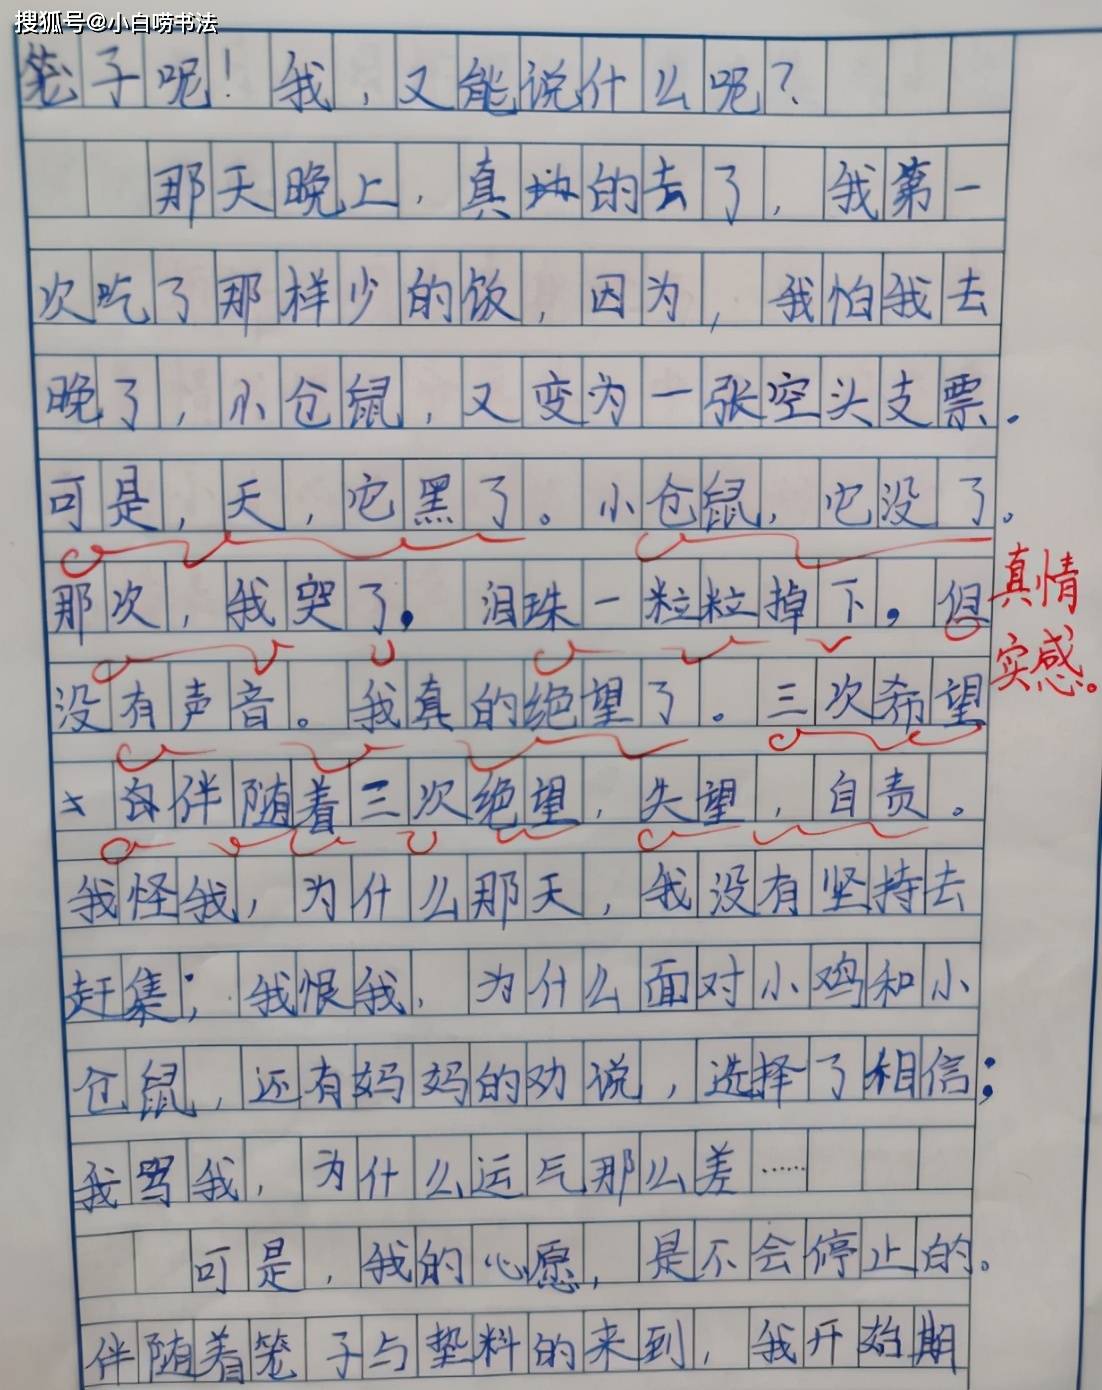 搜狐号@小白唠书法
笼子呢！我，又能说什么呢？
那天晚上，真的去了，我第一
次吃了那样少的饭，因为，我怕我去
晚了，小仓鼠，又变为一张空头支票.
可是，天，它黑了。小仓鼠，它没了。
那次，我哭了，泪珠一粒粒掉下，但
真情
实感。
没有声音。我真的绝望了。三次希望
伴随着三次绝望，失望，自责。
我怪我，为什么那天，我没有坚持去
赶集；我恨我，为什么面对小鸡和小
仓鼠，还有妈妈的劝说，选择了相信；
我骂我，为什么运气那么差……
可是，我的心愿，是不会停止的。
伴随着笼子与垫料的来到，我开始期